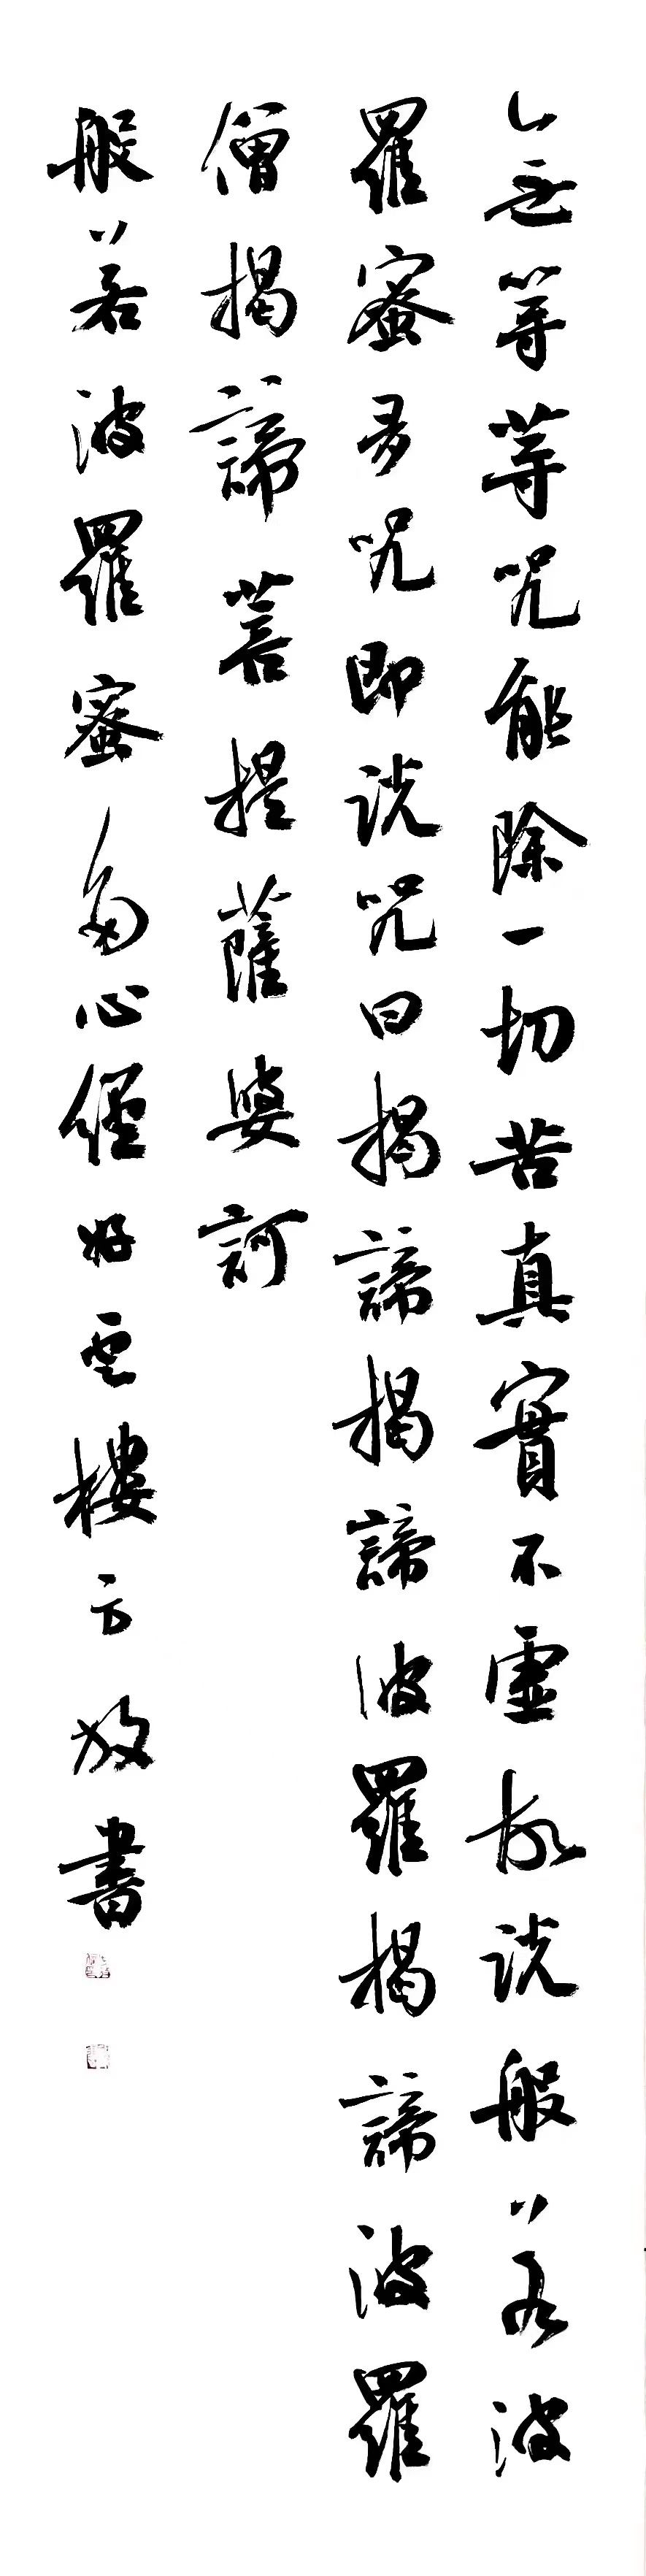 無等等咒能除一切苦真實不虛故說般若波
羅蜜多咒即說咒曰揭諦揭諦波羅揭諦波羅
僧揭諦菩提薩婆訶
般若波羅蜜多心經好雲樓方放書